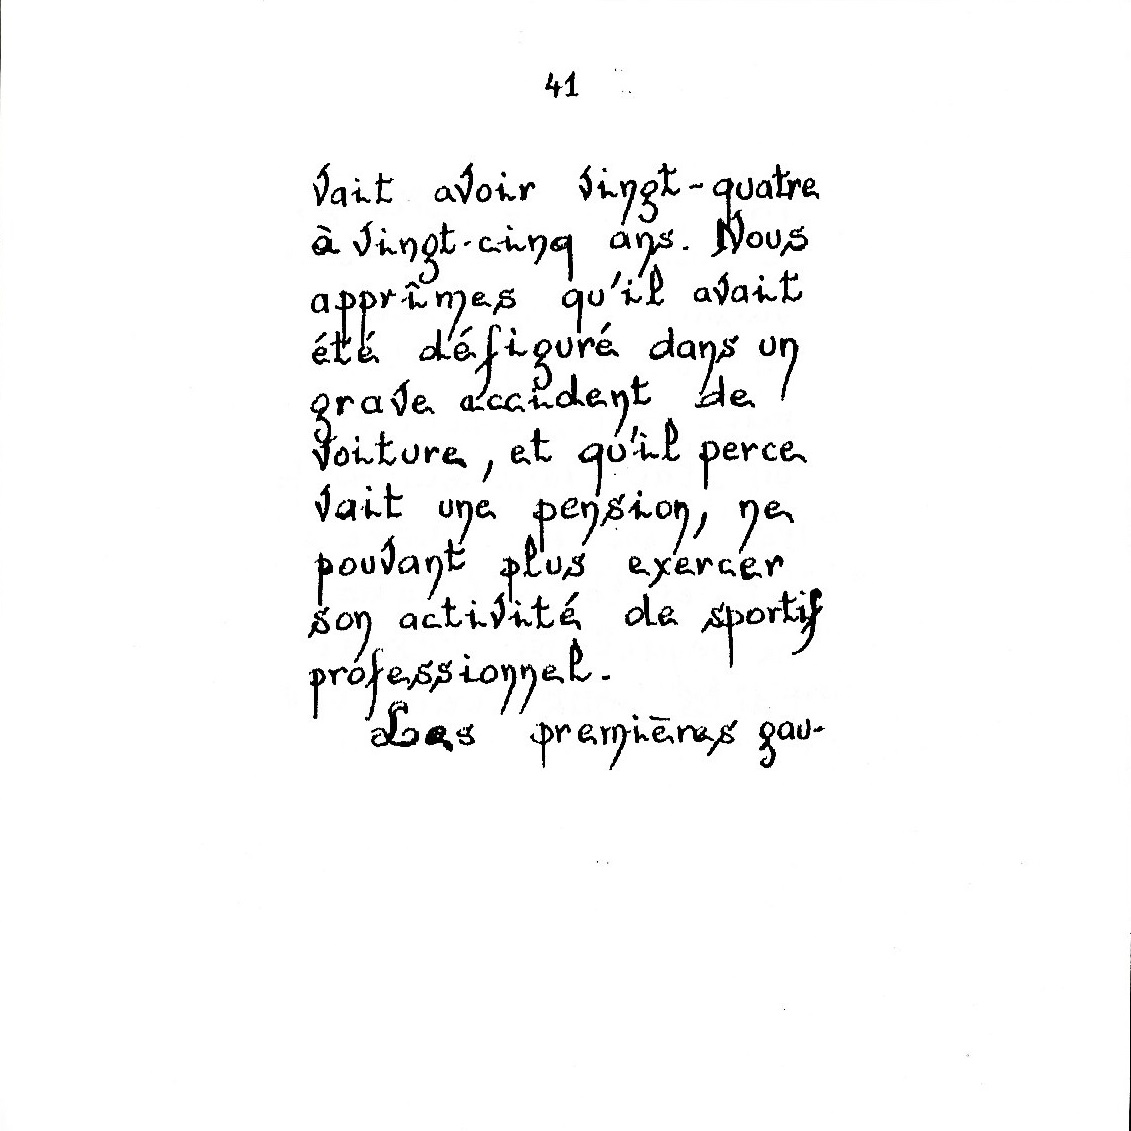 41
vait avoir vingt-quatre
à vingt-cinq ans. Nous
apprîmes qu'il avait
été défiguré dans un
grave accident de
voiture, et qu'il perce
vait une pension, ne
pouvant plus exercer
son activité de sportif
professionnel.
Les premières gau-